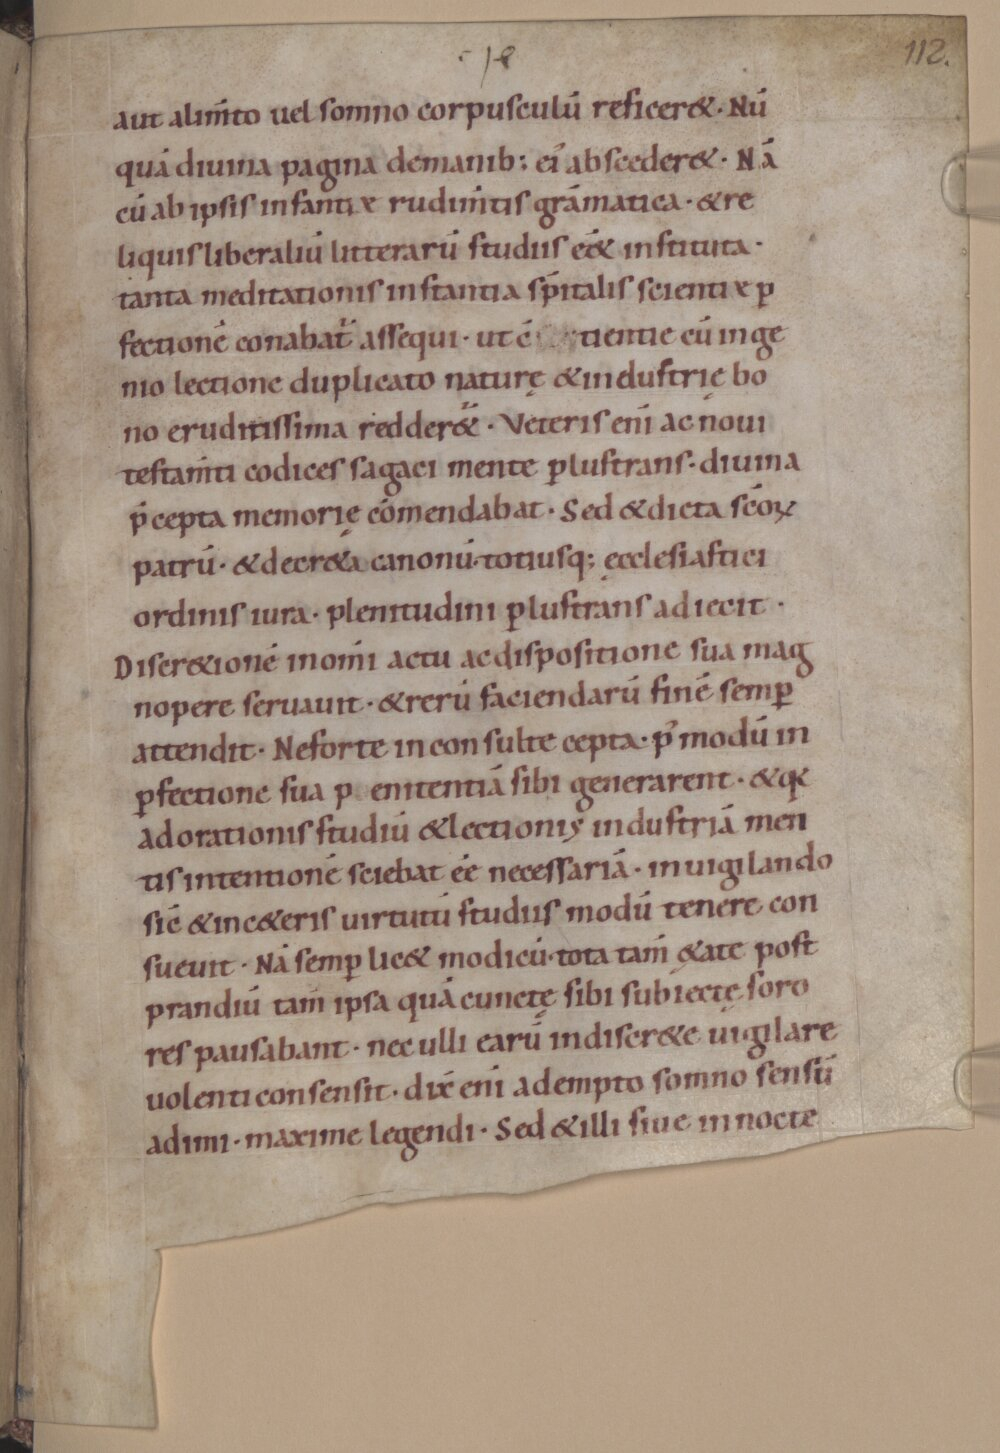 112.
aut alim̄to uel somno corpusculū reficer&. Nū
quā diuina pagina demanib; ei᾽ absceder&. Nā
cū ab ipsis infantiæ rudim̄tis grāmatica. &re
liquis liberaliū litterarū studiis eē& instituta.
tanta meditationis instantia sp̄italis scientiæ ꝑ
fectionē conabat᷑ assequi. ut ē tientie cū inge
nio lectione duplicato naturę &industrię bo
no eruditissima redder&᷑. Veteris enī ac noui
testam̄ti codices sagaci mente ꝑlustrans. diuina
p̄cepta memorię cōmendabat. Sed &dicta sc̄oꝝ
patrū. &decr&a canonū. totiusq; ęcclesiastici
ordinis iura. plenitudini ꝑlustrans adiecit.
Discr&ionē inom̄i actu ac dispositione sua mag
nopere seruauit. &rerū faciendarū finē semꝑ
attendit. Neforte inconsulte cepta. p᾽ modū in
ꝑfectione sua p enitentiā sibi generarent. &qꝛ
adorationis studiū &lectionis industriā men
tis intentionē sciebat eē necessariā. inuigilando
sic̄ &inc&eris uirtutū studiis modū tenere con
sueuit. Nā semꝑ lic& modicū. tota tam̄ ę&ate post
prandiū tam̄ ipsa quā cunctę sibi subiectę soro
res pausabant. nec ulli earū indiscr&e uigilare
uolenti consensit. dix̄ enī adempto somno sensū
adimi. maxime legendi. Sed &illi siue in nocte